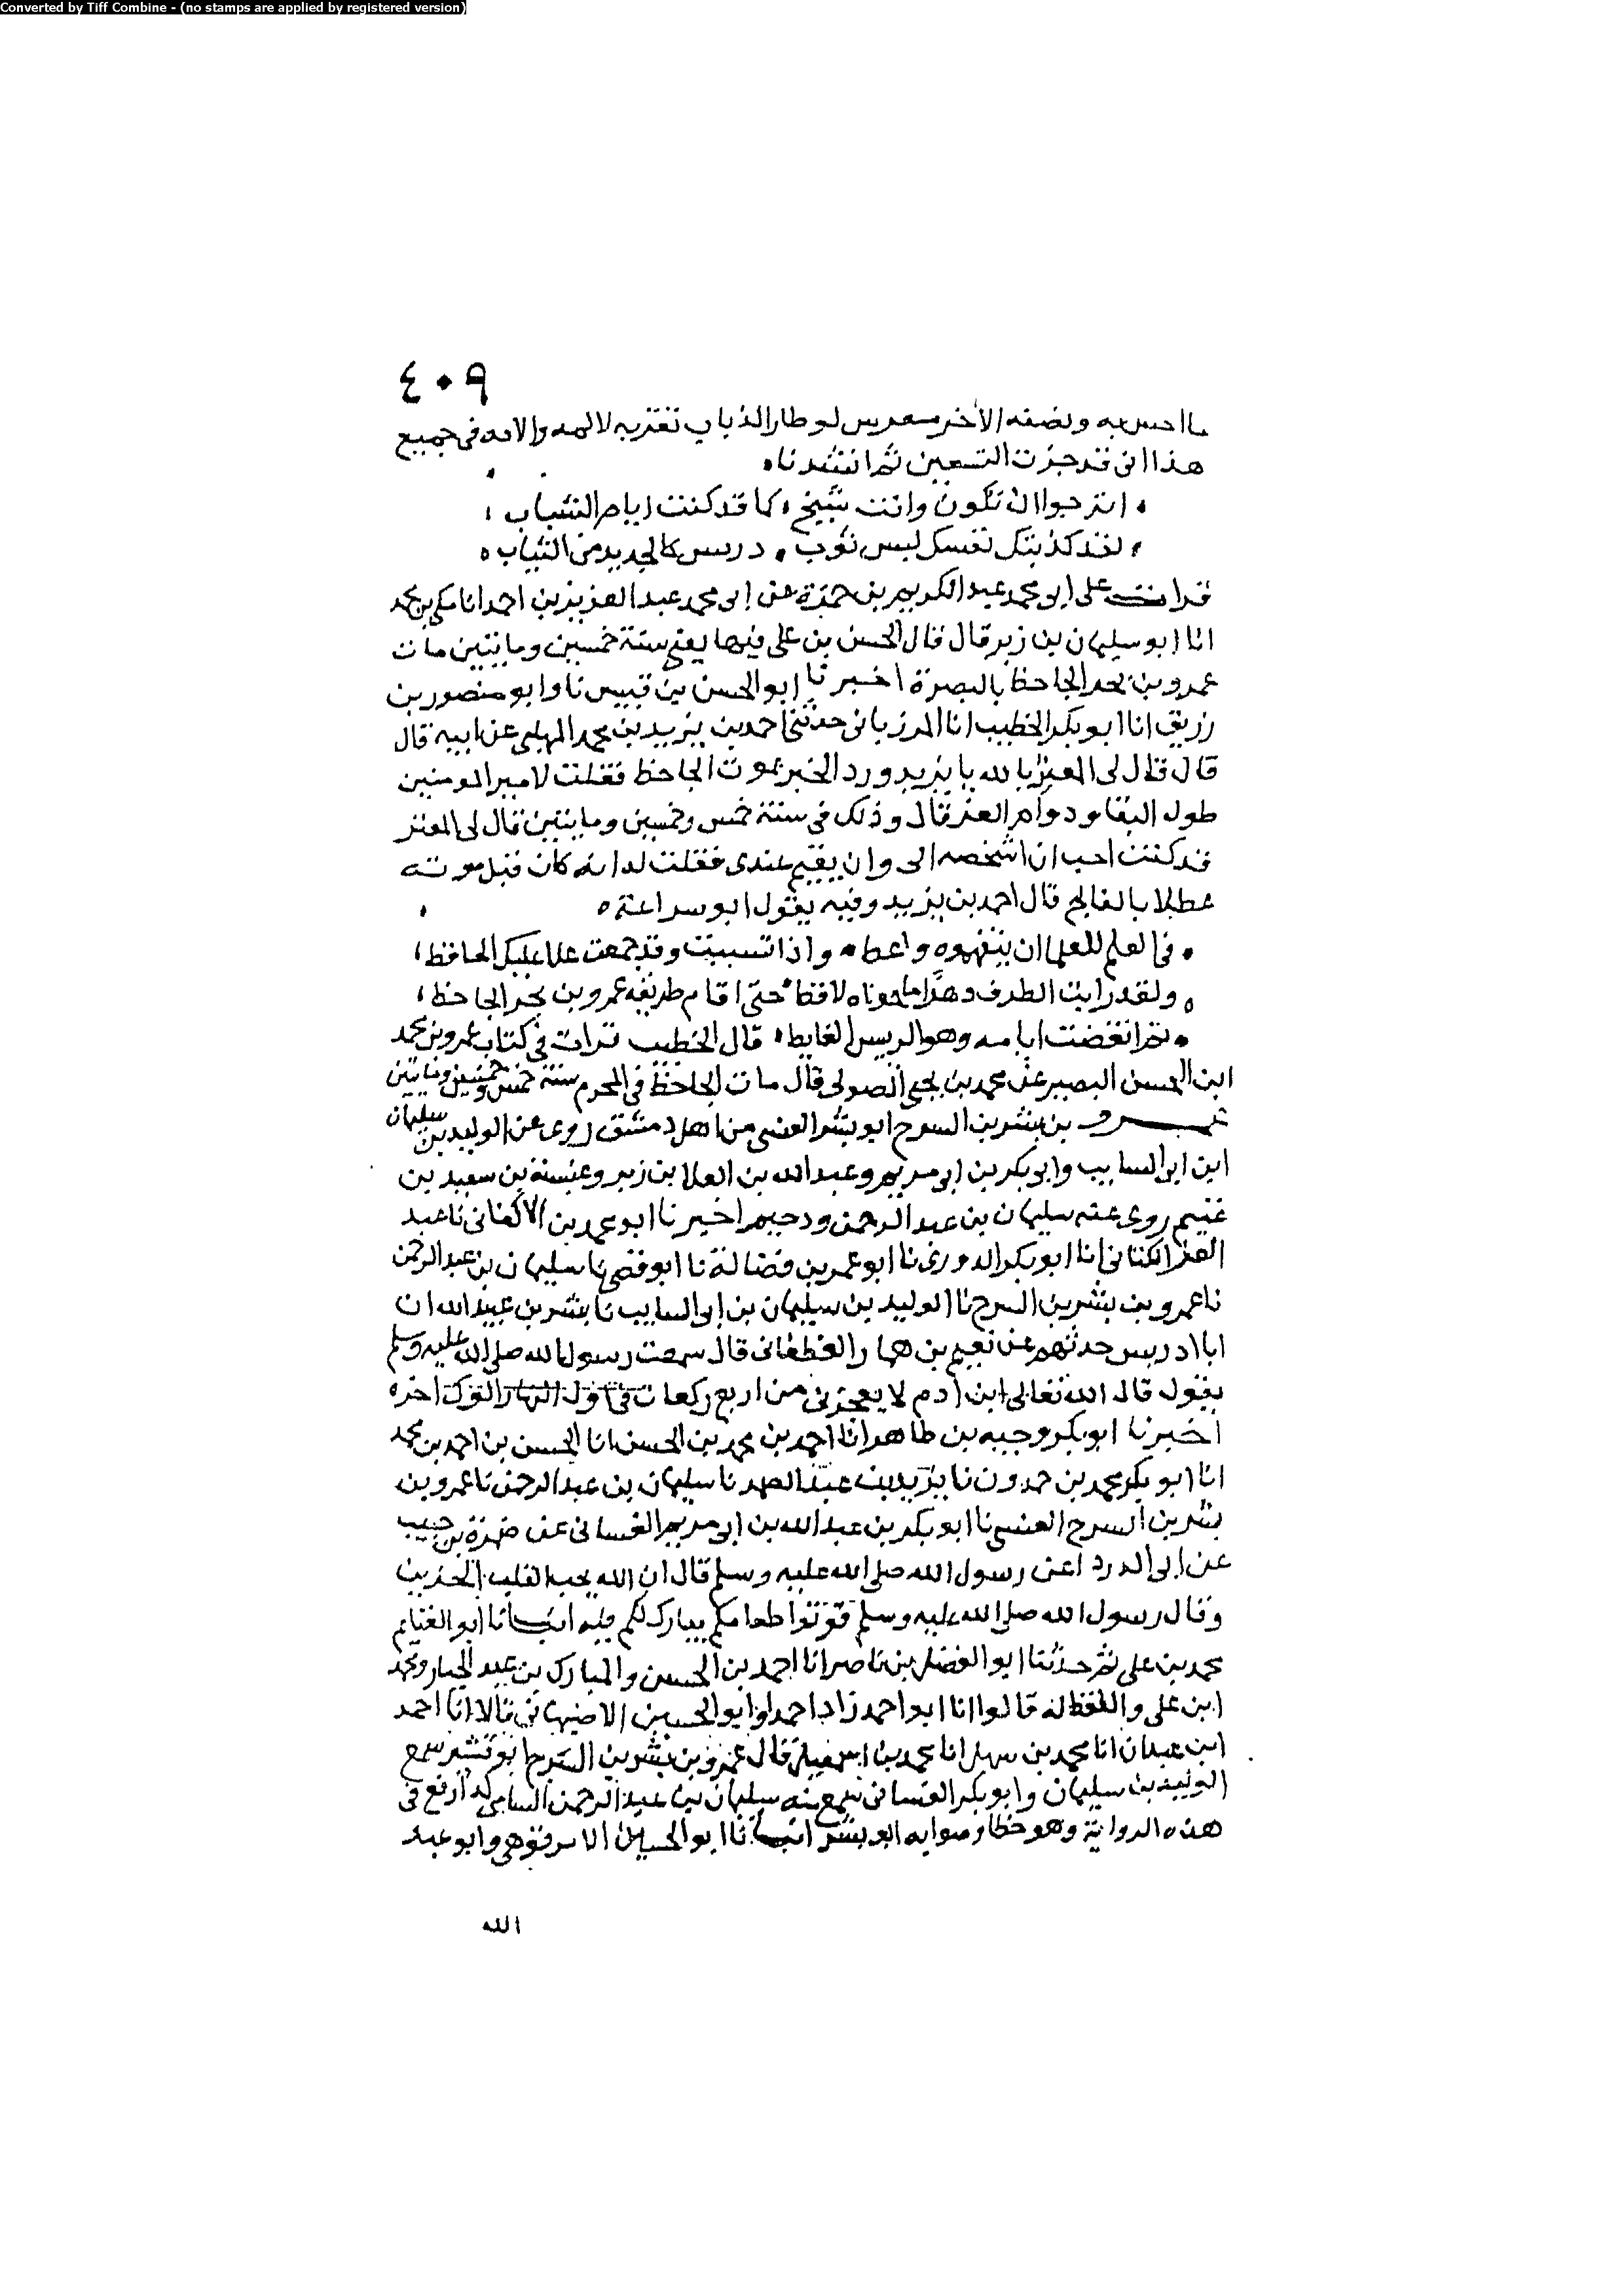 Converted by Tiff Combine - (no stamps are applied by registered version)
٤٠٩
ما احس به ونصفه الاخر لو طار الذباب بقربه لالمه في جميع
هذا انى قد جزت التسعين ثم انشدنا
اترجوا ان تكون وانت شيخ كما قد كنت ايام الشباب
لقد كذبتك نفسك ليس ثوب دريس كالجديد من الثياب
قرات على ابى محمد عبد الكريم بن حمزة عن ابى محمد عبد العزيز بن احمد انا مكى بن محمد
انا ابو سليمان بن زبر قال قال الحسن بن على فيها يعنى سنة خمسين ومايتين مات
عمرو بن بحر الجاحظ بالبصرة اخبرنا ابو الحسن بن قبيس نا وابو منصور بن
زريق انا ابو بكر الخطيب انا المرزبانى حدثنى احمد بن يزيد بن محمد المهلبى عن ابيه قال
قال قال لى المعتز بالله يا يزيد ورد الخبر بموت الجاحظ فقلت لامير المومنين
طول البقا ودوام العز قال وذلك في سنة خمس وخمسين ومايتين قال لى المعتز
قد كنت احب ان اشخصه الى وان يقيم عندى فقلت له انه كان قبل موته
عطلا بالفالج قال احمد بن يزيد وفيه يقول ابو سراعة
في العلم للعلما ان يتفهموه واعظ واذا نسيت وقد جمعت علا عليك الحافظ
ولقد رايت الظرف دهرا ما حواه لافظ حتى اقام طريقه عمرو بن بحر الجاحظ
ثم انقضت ايامه وهو الريس الغايظ قال الخطيب قرات في كتاب عمرو بن محمد
ابن الحسن البصير عن محمد بن يحيى الصولى قال مات الجاحظ في المحرم سنة خمس وخمسين ومايتين
عمرو بن بشر بن السرح ابو بشر العنسى من اهل دمشق روى عن الوليد بن سليمان
ابن ابى السايب وابى بكر بن ابى مريم وعبد الله بن العلا بن زبر وعنبسة بن سعيد بن
غنيم روى عنه سليمان بن عبد الرحمن ودحيم اخبرنا ابو محمد بن الاكفانى نا عبد
العزيز الكتانى انا ابو بكر الدورى نا ابو عمر بن فضالة نا ابو قصى نا سليمان بن عبد الرحمن
نا عمرو بن بشر بن السرح نا الوليد بن سليمان بن ابى السايب نا بشر بن عبيد الله ان
ابا ادريس حدثهم عن نعيم بن همار الغطفانى قال سمعت رسول الله صلى الله عليه وسلم
يقول قال الله تعالى ابن ادم لا يعجزنى من اربع ركعات في اول النهار اخره
اخبرنا ابو بكر وجيه بن طاهر انا احمد بن محمد بن الحسن انا الحسن بن احمد بن محمد
انا ابو بكر محمد بن حمدون نا يزيد بن عبد الصمد نا سليمان بن عبد الرحمن نا عمرو بن
بشر بن السرح العنسى نا ابو بكر بن عبد الله بن ابى مريم الغسانى عن ضمرة بن حبيب
عن ابى الدردا عن رسول الله صلى الله عليه وسلم قال ان الله يحب القلب الحزين
وقال رسول الله صلى الله عليه وسلم قوتوا طعامكم يبارك لكم فيه انبانا ابو الغنايم
محمد بن على ثم حدثنا ابو الفضل بن ناصر انا احمد بن الحسن والمبارك بن عبد الجبار ومحمد
ابن على واللفظ له قالوا انا ابو احمد زاد احمد وابو الحسين الاصبهانى قالا انا احمد
ابن عبدان انا محمد بن سهل انا محمد بن اسمعيل قال عمرو بن بشر بن السرح ابو بشر سمع
الوليد بن سليمان وابو بكر الغسانى سمع منه سليمان بن عبد الرحمن الشامى في
هذه الرواية وهو خطا وصوابه ابو بشر انبانا ابو الحسين الابرقوهى وابو عبد
الله